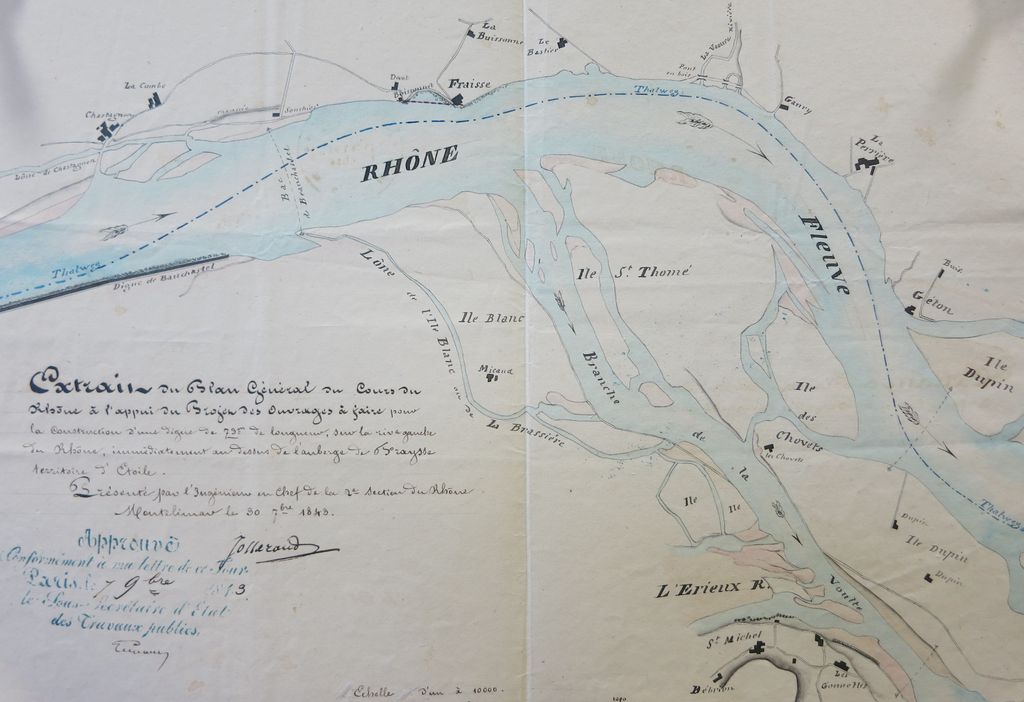 La Combe
Chastagnon
Lône de Chastagnon
La Buissonne
Le Bastier
Fraisse
La Veoure rivière
Pont en bois
Ganry
La Perrière
Thalweg
RHÔNE
Fleuve
Bac de Branchastel
Thalweg
Digue de Bauchastel
Lône de l'Ile Blanc ou de La Brassière
Ile Blanc
Micaud
Ile St. Thomé
Branche de la Voulte
Buis
Gélon
Ile Dupin
Ile des Chovets
les Chovets
Ile
Ile
Thalweg
Dupin
Ile Dupin
Dupin
L'Erieux R.
St. Michel
Bébrion
Les Gonnettes
Extrait du Plan Général du Cours du
Rhône à l'appui du Projet des Ouvrages à faire pour
la Construction d'une digue de 795m de longueur, sur la rive gauche
du Rhône, immédiatement au dessus de l'auberge de Fraysse
territoire d'Étoile.
Présenté par l'Ingénieur en Chef de la 2e Section du Rhône
Montélimar le 30 7bre 1843.
Approuvé
Conformément à ma lettre de ce Jour
Paris, le 7 9bre 1843
le Sous-Secrétaire d'Etat
des Travaux publics,
Echelle d'un à 10000.